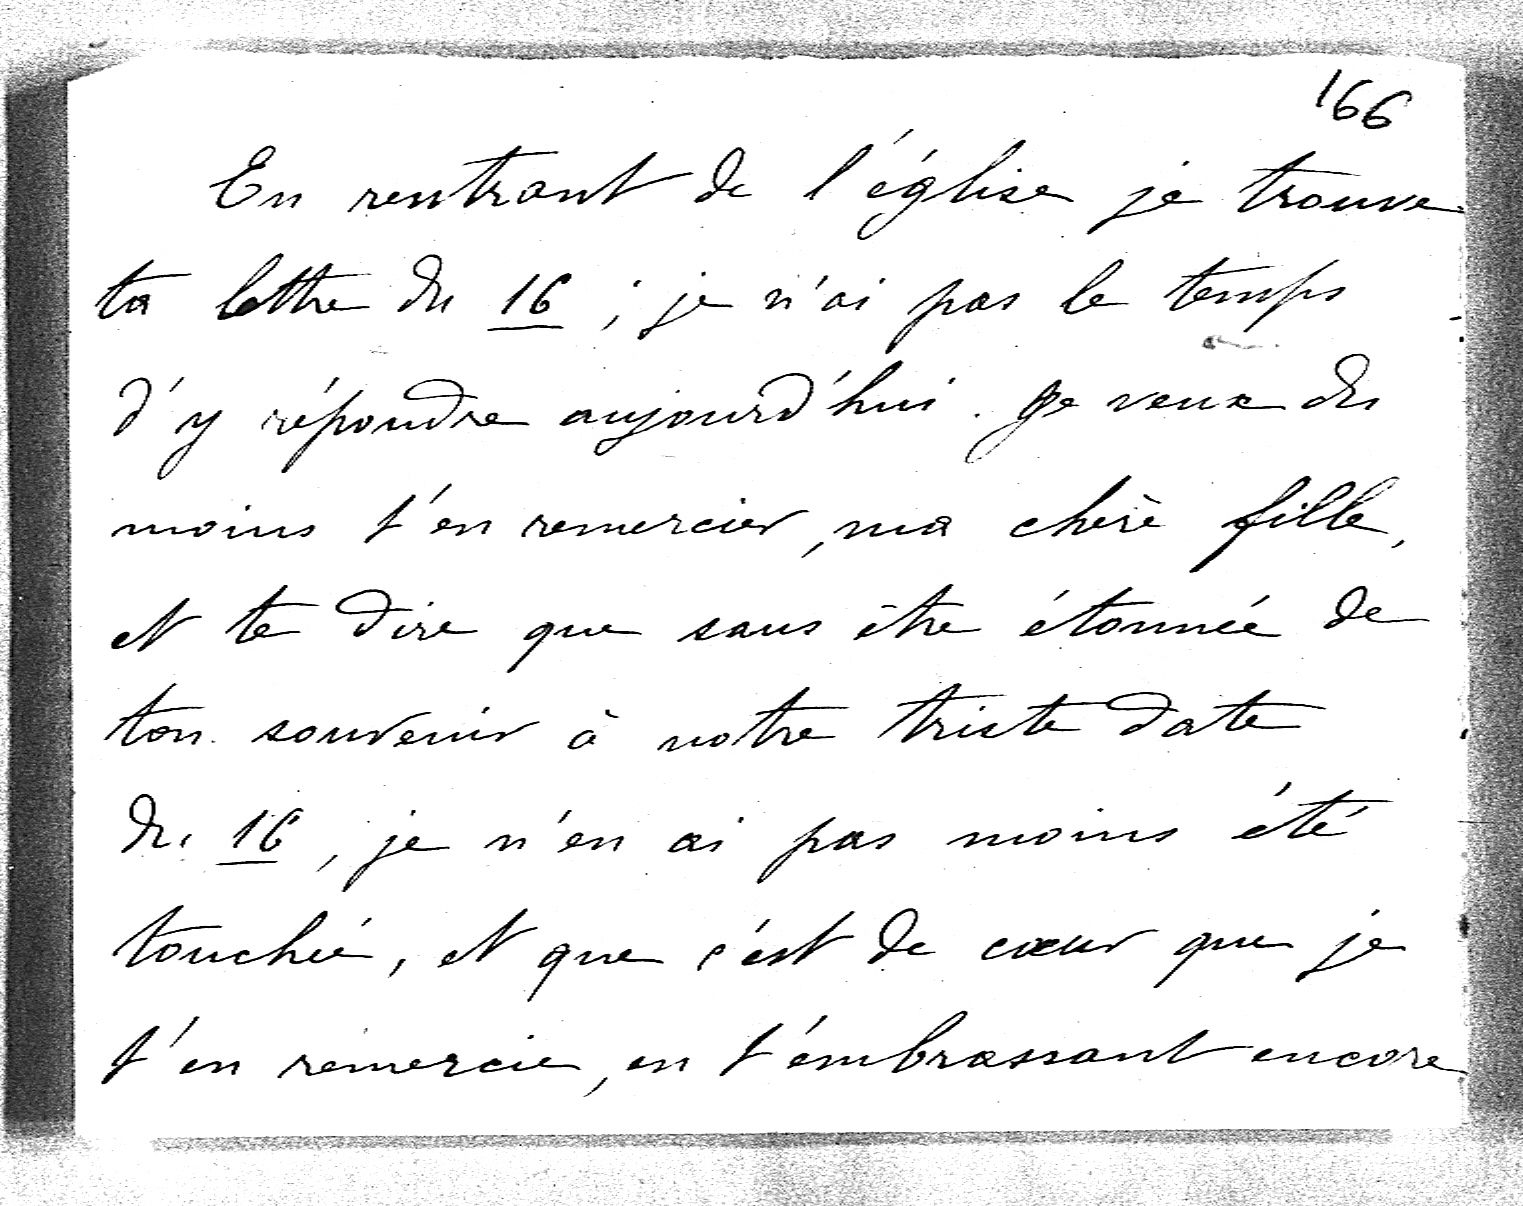 166
En rentrant de l'église je trouve
ta lettre du 16 ; je n'ai pas le temps
d'y répondre aujourd'hui. Je veux du
moins t'en remercier, ma chère fille,
et te dire que sans être étonnée de
ton souvenir à notre triste date
du 16, je n'en ai pas moins été
touchée, et que c'est de cœur que je
t'en remercie, en t'embrassant encore